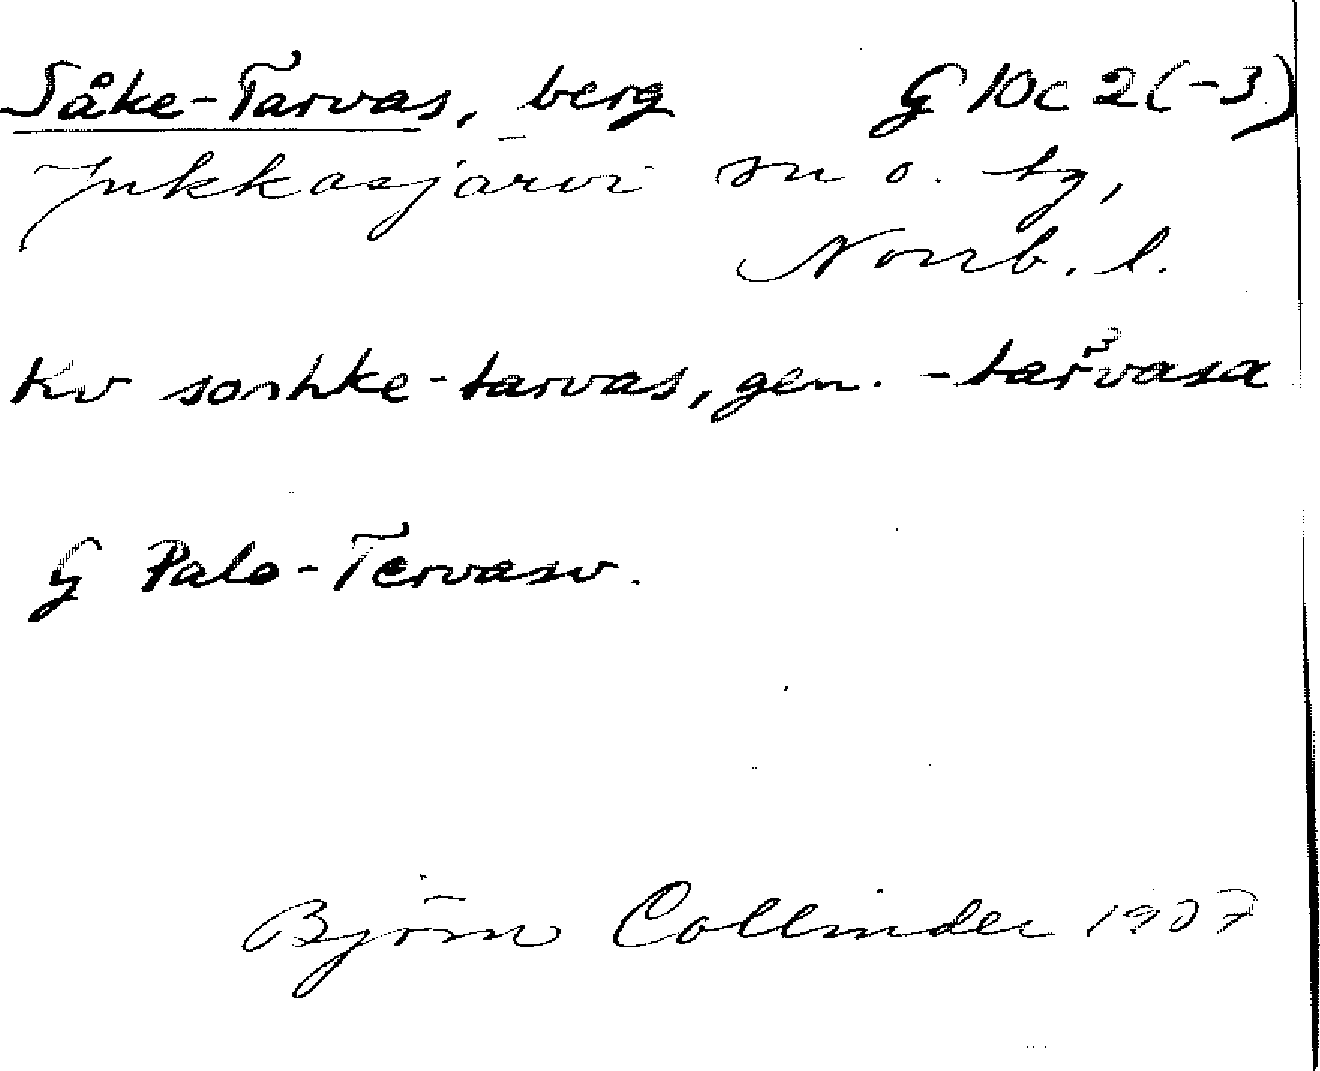 Såke-Tarvas, berg G 10c 2(-3)
Jukkasjärvi sn o. tg,
Norrb. l.
Kv sorhke-tarvas, gen. -tarvasa
G Palo-Tervasv.
Björn Collinder 1937